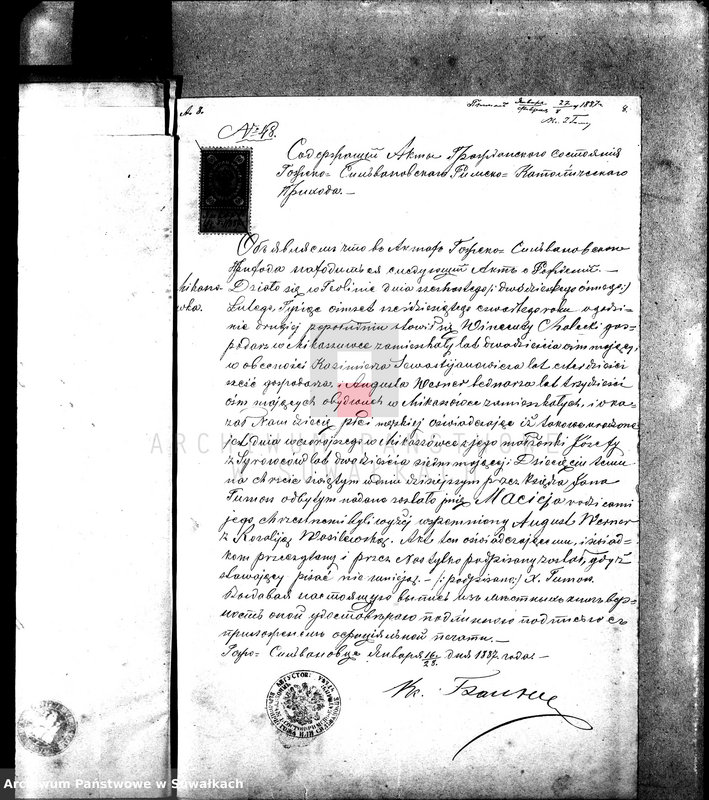 A. 8.
№ 48.
Января 27 1887
8.
Содержащiй Акты Гражданского состоянiя
Гожско-Сильвановскаго Римско-Католическаго
Прихода. —
Объявляемъ что въ Актахъ Гожско-Сильвановскаго
Прихода находится следующiй Актъ о Рожденiи. —
Działo się w Teolinie dnia
Lutego, Tysiąc ośmset sześćdziesiątego czwartego roku o godzi-
nie drugiej popołudniu stawił się Wincenty Chalecki gos-
podarz w Mikaszówce zamieszkały lat dwadzieścia ośm mający,
w obecności Kazimierza Sewastjanowicza lat czterdzieści
sześć gospodarza i Augusta Werner bednarza lat trzydzieści
ośm mających obydwóch w Mikaszówce zamieszkałych, i oka-
zał Nam dziecię płci męzkiej oświadczając iż takowe urodzone
jest dnia wczorajszego w Mikaszówce z jego małżonki Józefy
z Syrowców lat dwadzieścia siedm mającej. Dziecięciu temu
na chrzcie świętym w dniu dzisiejszym przez księdza Jana
Tumon odbytym nadane zostało imię Macieja rodzicami
jego chrzestnemi byli wyżej wspomniony August Werner
z Rozalją Wasilewską. Akt ten oświadczającemu, i świad-
kom przeczytany i przez Nas tylko podpisany został, gdyż
stawający pisać nie umieją. — /:podpisano:/ X. Tumon.
Выдавая настоящую выпись изъ мѣстныхъ книгъ вѣр-
ность оной удостовѣряю подлинного подписью съ
приложенiемъ оффицiальной печати. —
Гоже-Сильвановце Января 16/28 дня 1887 года. —
Кс.
ARCHIWUM PAŃSTWOWE
W SUWAŁKACH
Archiwum Państwowe w Suwałkach